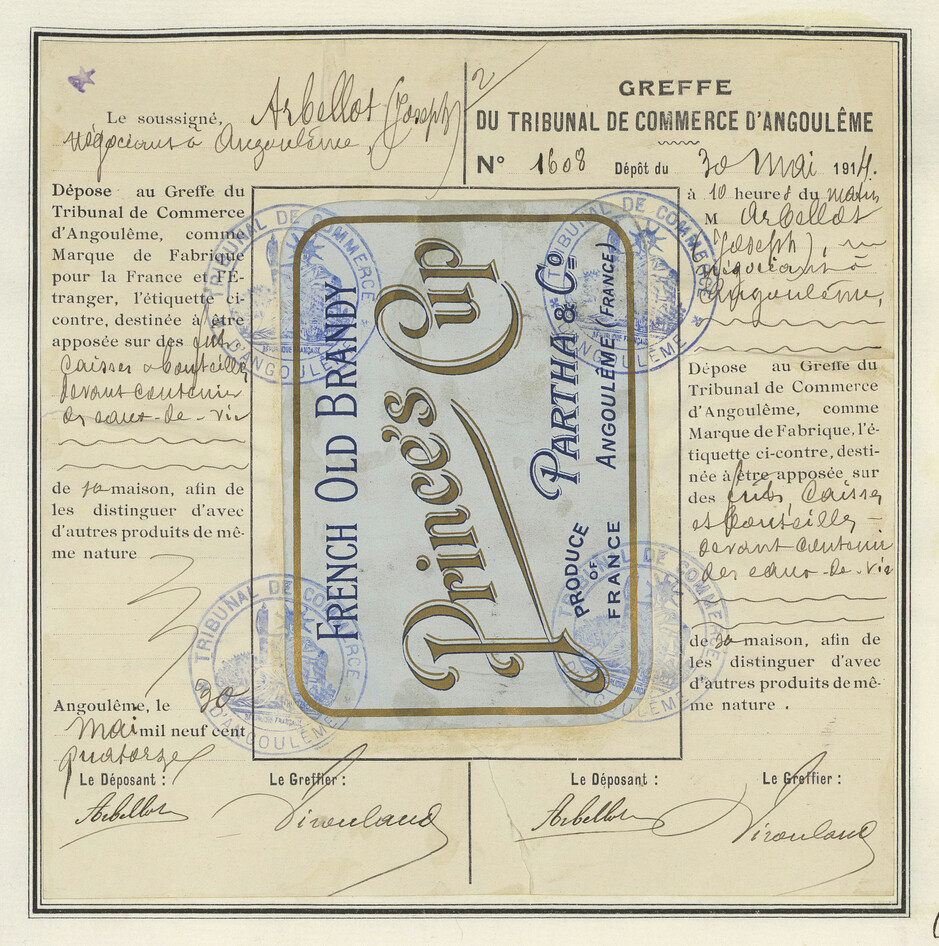 Le soussigné, Arbellot (Joseph)
négociant à Angoulême,
Dépose au Greffe du
Tribunal de Commerce
d'Angoulême, comme
Marque de Fabrique
pour la France et l'É-
tranger, l'étiquette ci-
contre, destinée à être
apposée sur des fûts
caisses & bouteilles
devant contenir
des eaux-de-vie
de sa maison, afin de
les distinguer d'avec
d'autres produits de mê-
me nature
Angoulême, le 30
Mai mil neuf cent
quatorze
Le Déposant :
Le Greffier :
Arbellot
FRENCH OLD BRANDY
Prince's Cup
PARTHA & Co
ANGOULÊME (FRANCE)
PRODUCE
OF
FRANCE
TRIBUNAL DE COMMERCE
D'ANGOULÊME
RÉPUBLIQUE FRANÇAISE
TRIBUNAL DE COMMERCE
D'ANGOULÊME
RÉPUBLIQUE FRANÇAISE
TRIBUNAL DE COMMERCE
D'ANGOULÊME
RÉPUBLIQUE FRANÇAISE
TRIBUNAL DE COMMERCE
D'ANGOULÊME
2
GREFFE
DU TRIBUNAL DE COMMERCE D'ANGOULÊME
N° 1608 Dépôt du 30 Mai 1914.
à 10 heures du matin
M Arbellot
(Joseph),
négociant à
Angoulême,
Dépose au Greffe du
Tribunal de Commerce
d'Angoulême, comme
Marque de Fabrique, l'é-
tiquette ci-contre, desti-
née à être apposée sur
des fûts, caisses
et bouteilles
devant contenir
des eaux-de-vie
de sa maison, afin de
les distinguer d'avec
d'autres produits de mê-
me nature .
Le Déposant :
Le Greffier :
Arbellot